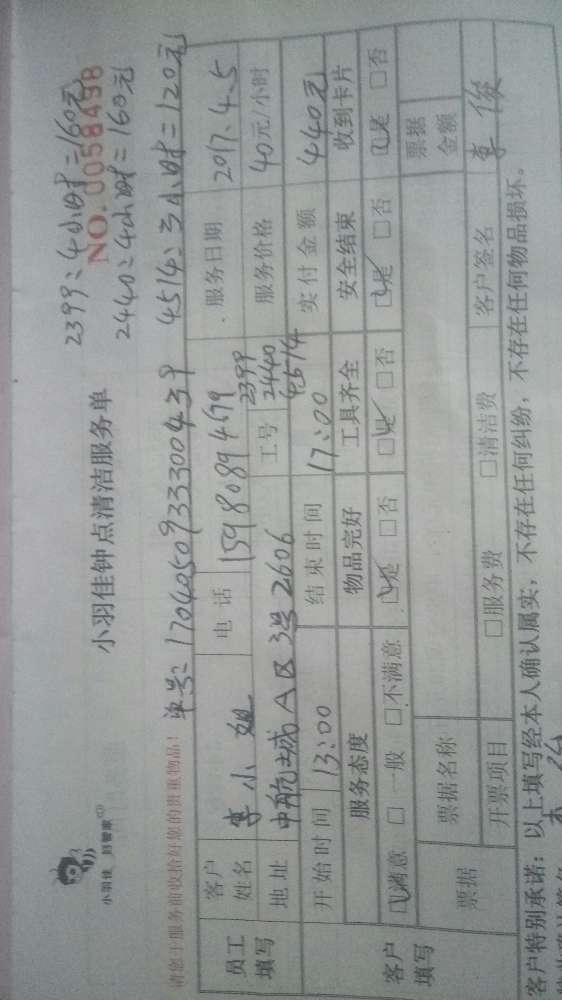 2399：4小时=160元
小羽佳 好管家
小羽佳钟点清洁服务单
NO.0058498
2440：4小时=160元
请您于服务前收拾好您的贵重物品！
单号：1704050933300439
4514：3小时=120元
员工填写
客户姓名
李小姐
电话
15980894679
服务日期
2017.4.5
地址
中航城A区3号2606
工号
2399
2440
4514
服务价格
40元/小时
开始时间
13:00
结束时间
17:00
实付金额
440元
客户填写
服务态度
物品完好
工具齐全
安全结束
收到卡片
☑满意 □一般 □不满意
☑是 □否
☑是 □否
☑是 □否
☑是 □否
票据
票据名称
票据金额
开票项目
□服务费
□清洁费
客户签名
李俊
客户特别承诺：以上填写经本人确认属实，不存在任何纠纷，不存在任何物品损坏。